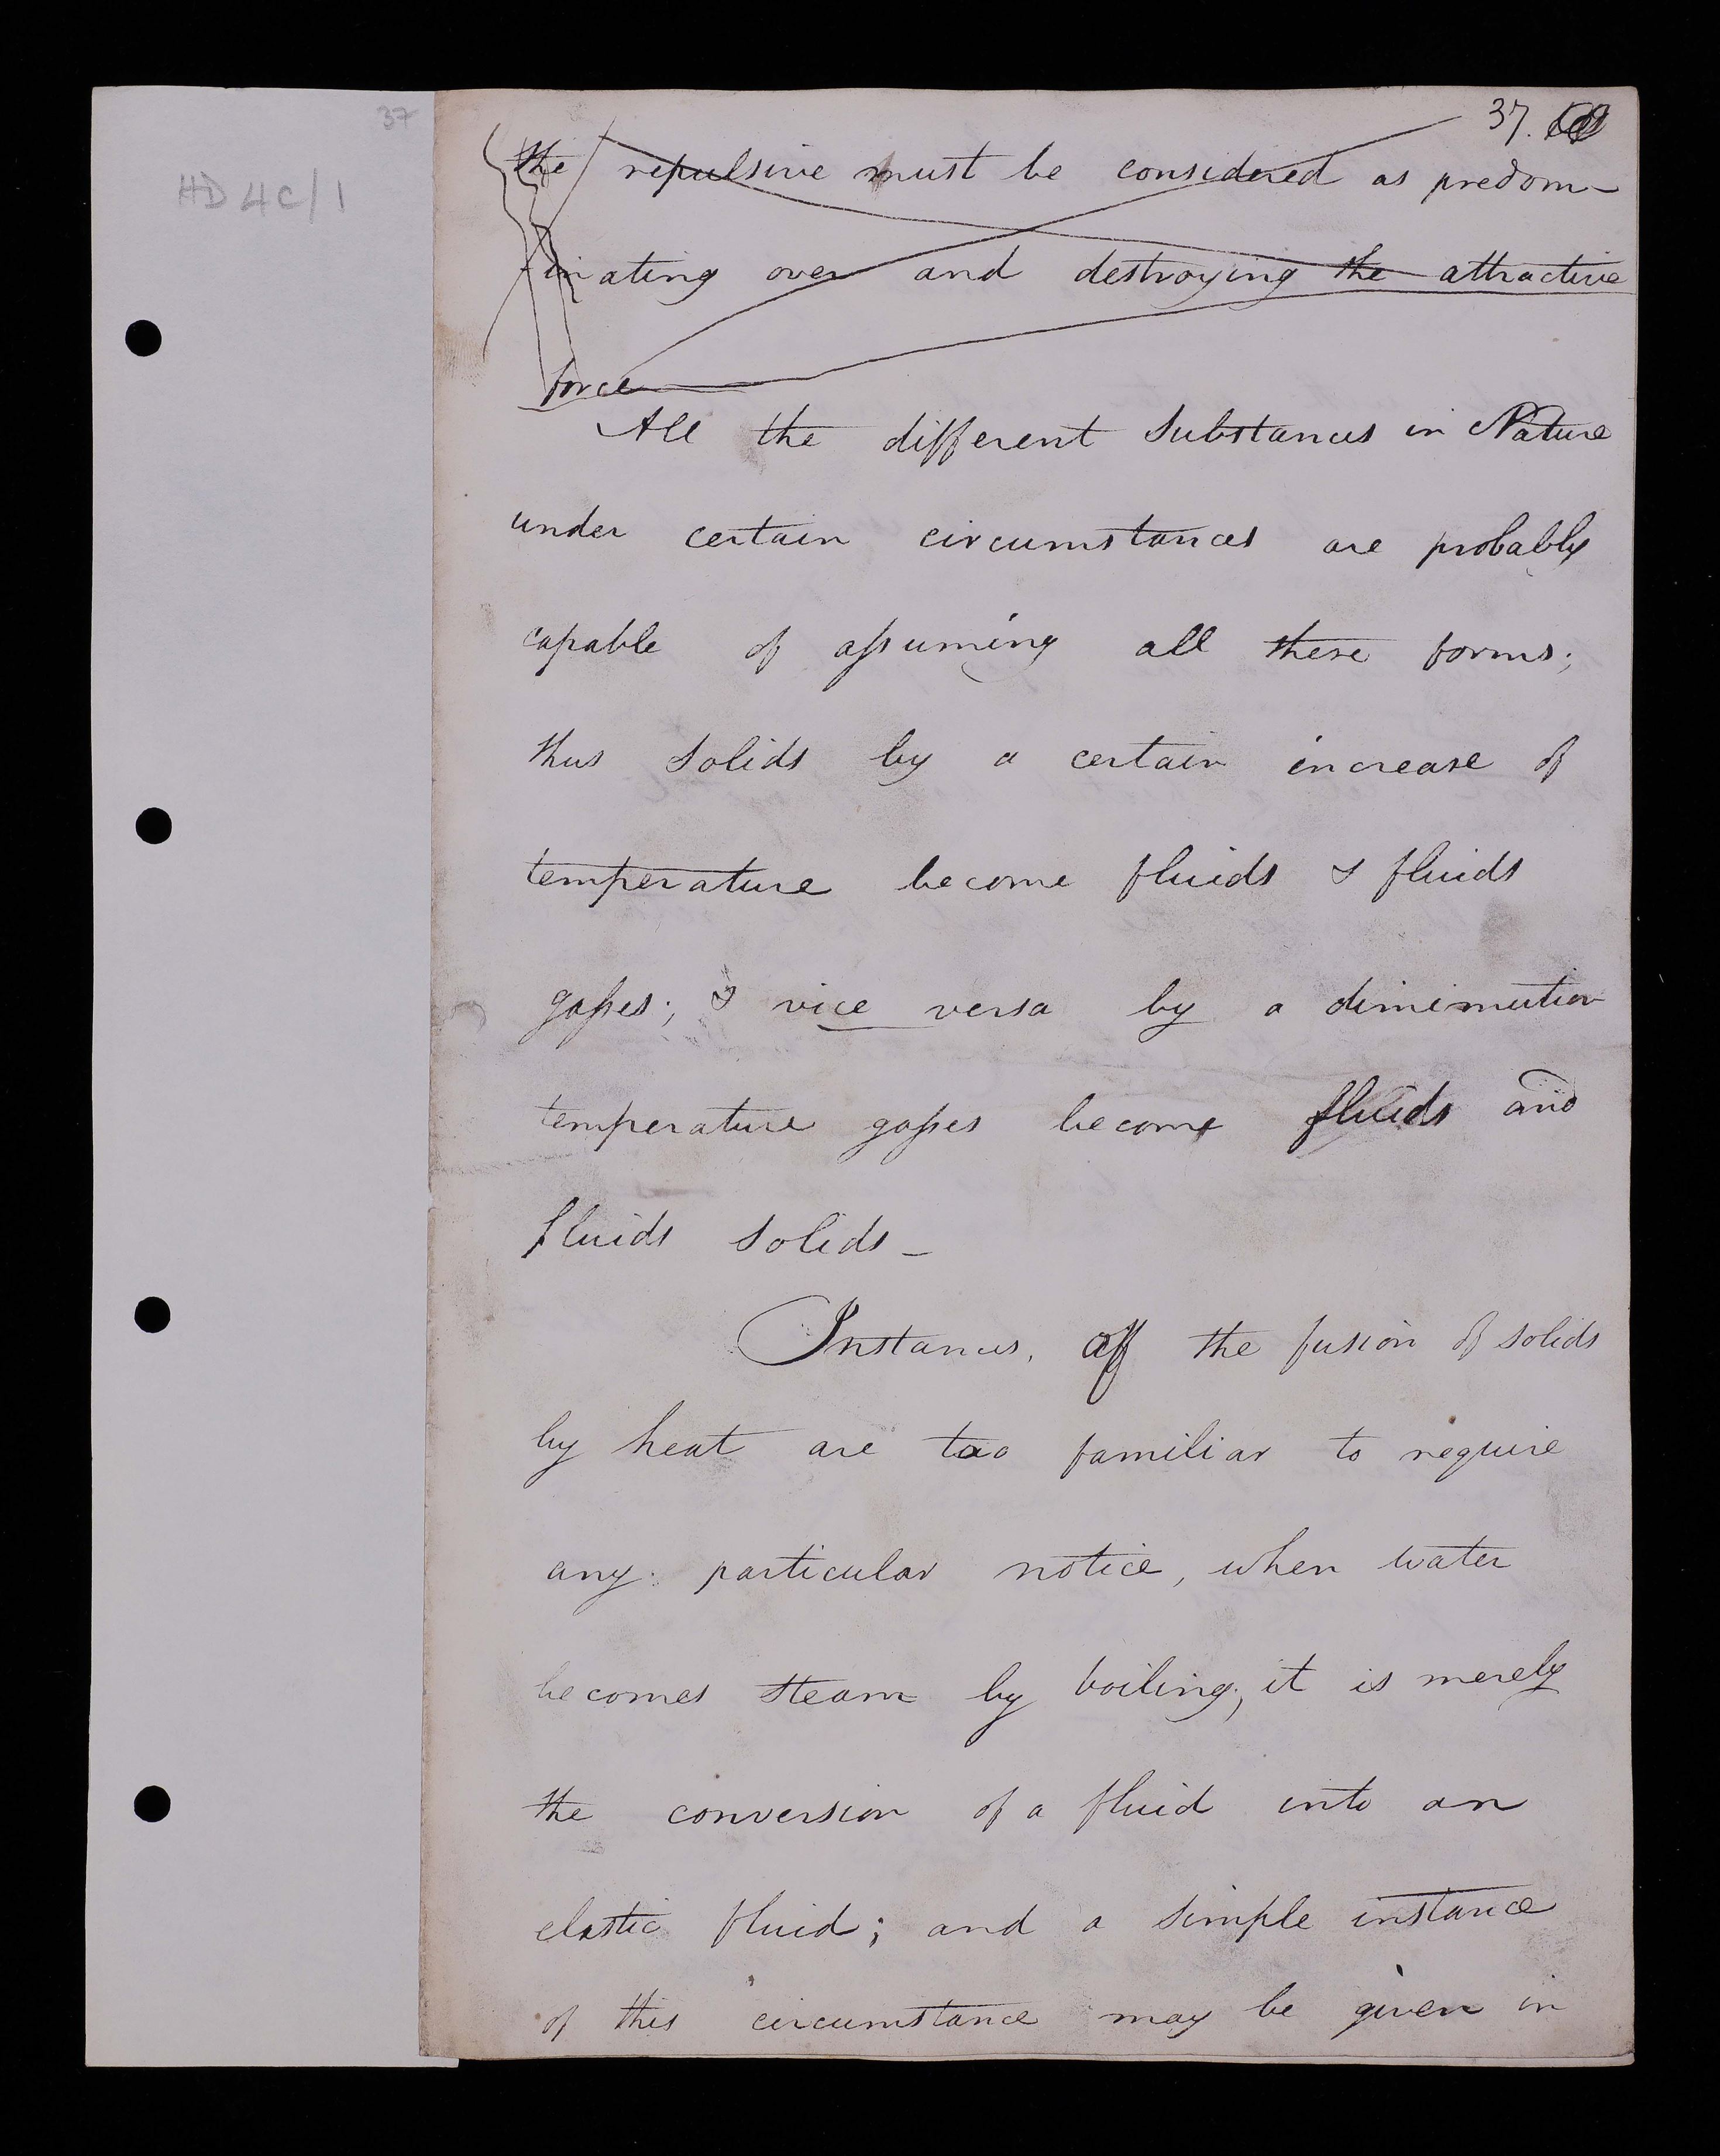 37
HD 4C/1
37.
the repulsive must be considered as predom-
inating over and destroying the attractive
force
All the different Substances in Nature
under certain circumstances are probably
capable of assuming all these forms;
thus Solids by a certain increase of
temperature become fluids & fluids
gasses; & vice versa by a dimimution
temperature gasses become fluids and
fluids Solids -
Instances, of the fusion of solids
by heat are too familiar to require
any particular notice, when water
becomes steam by boiling; it is merely
the conversion of a fluid into an
elastic fluid; and a simple instance
of this circumstance may be given in